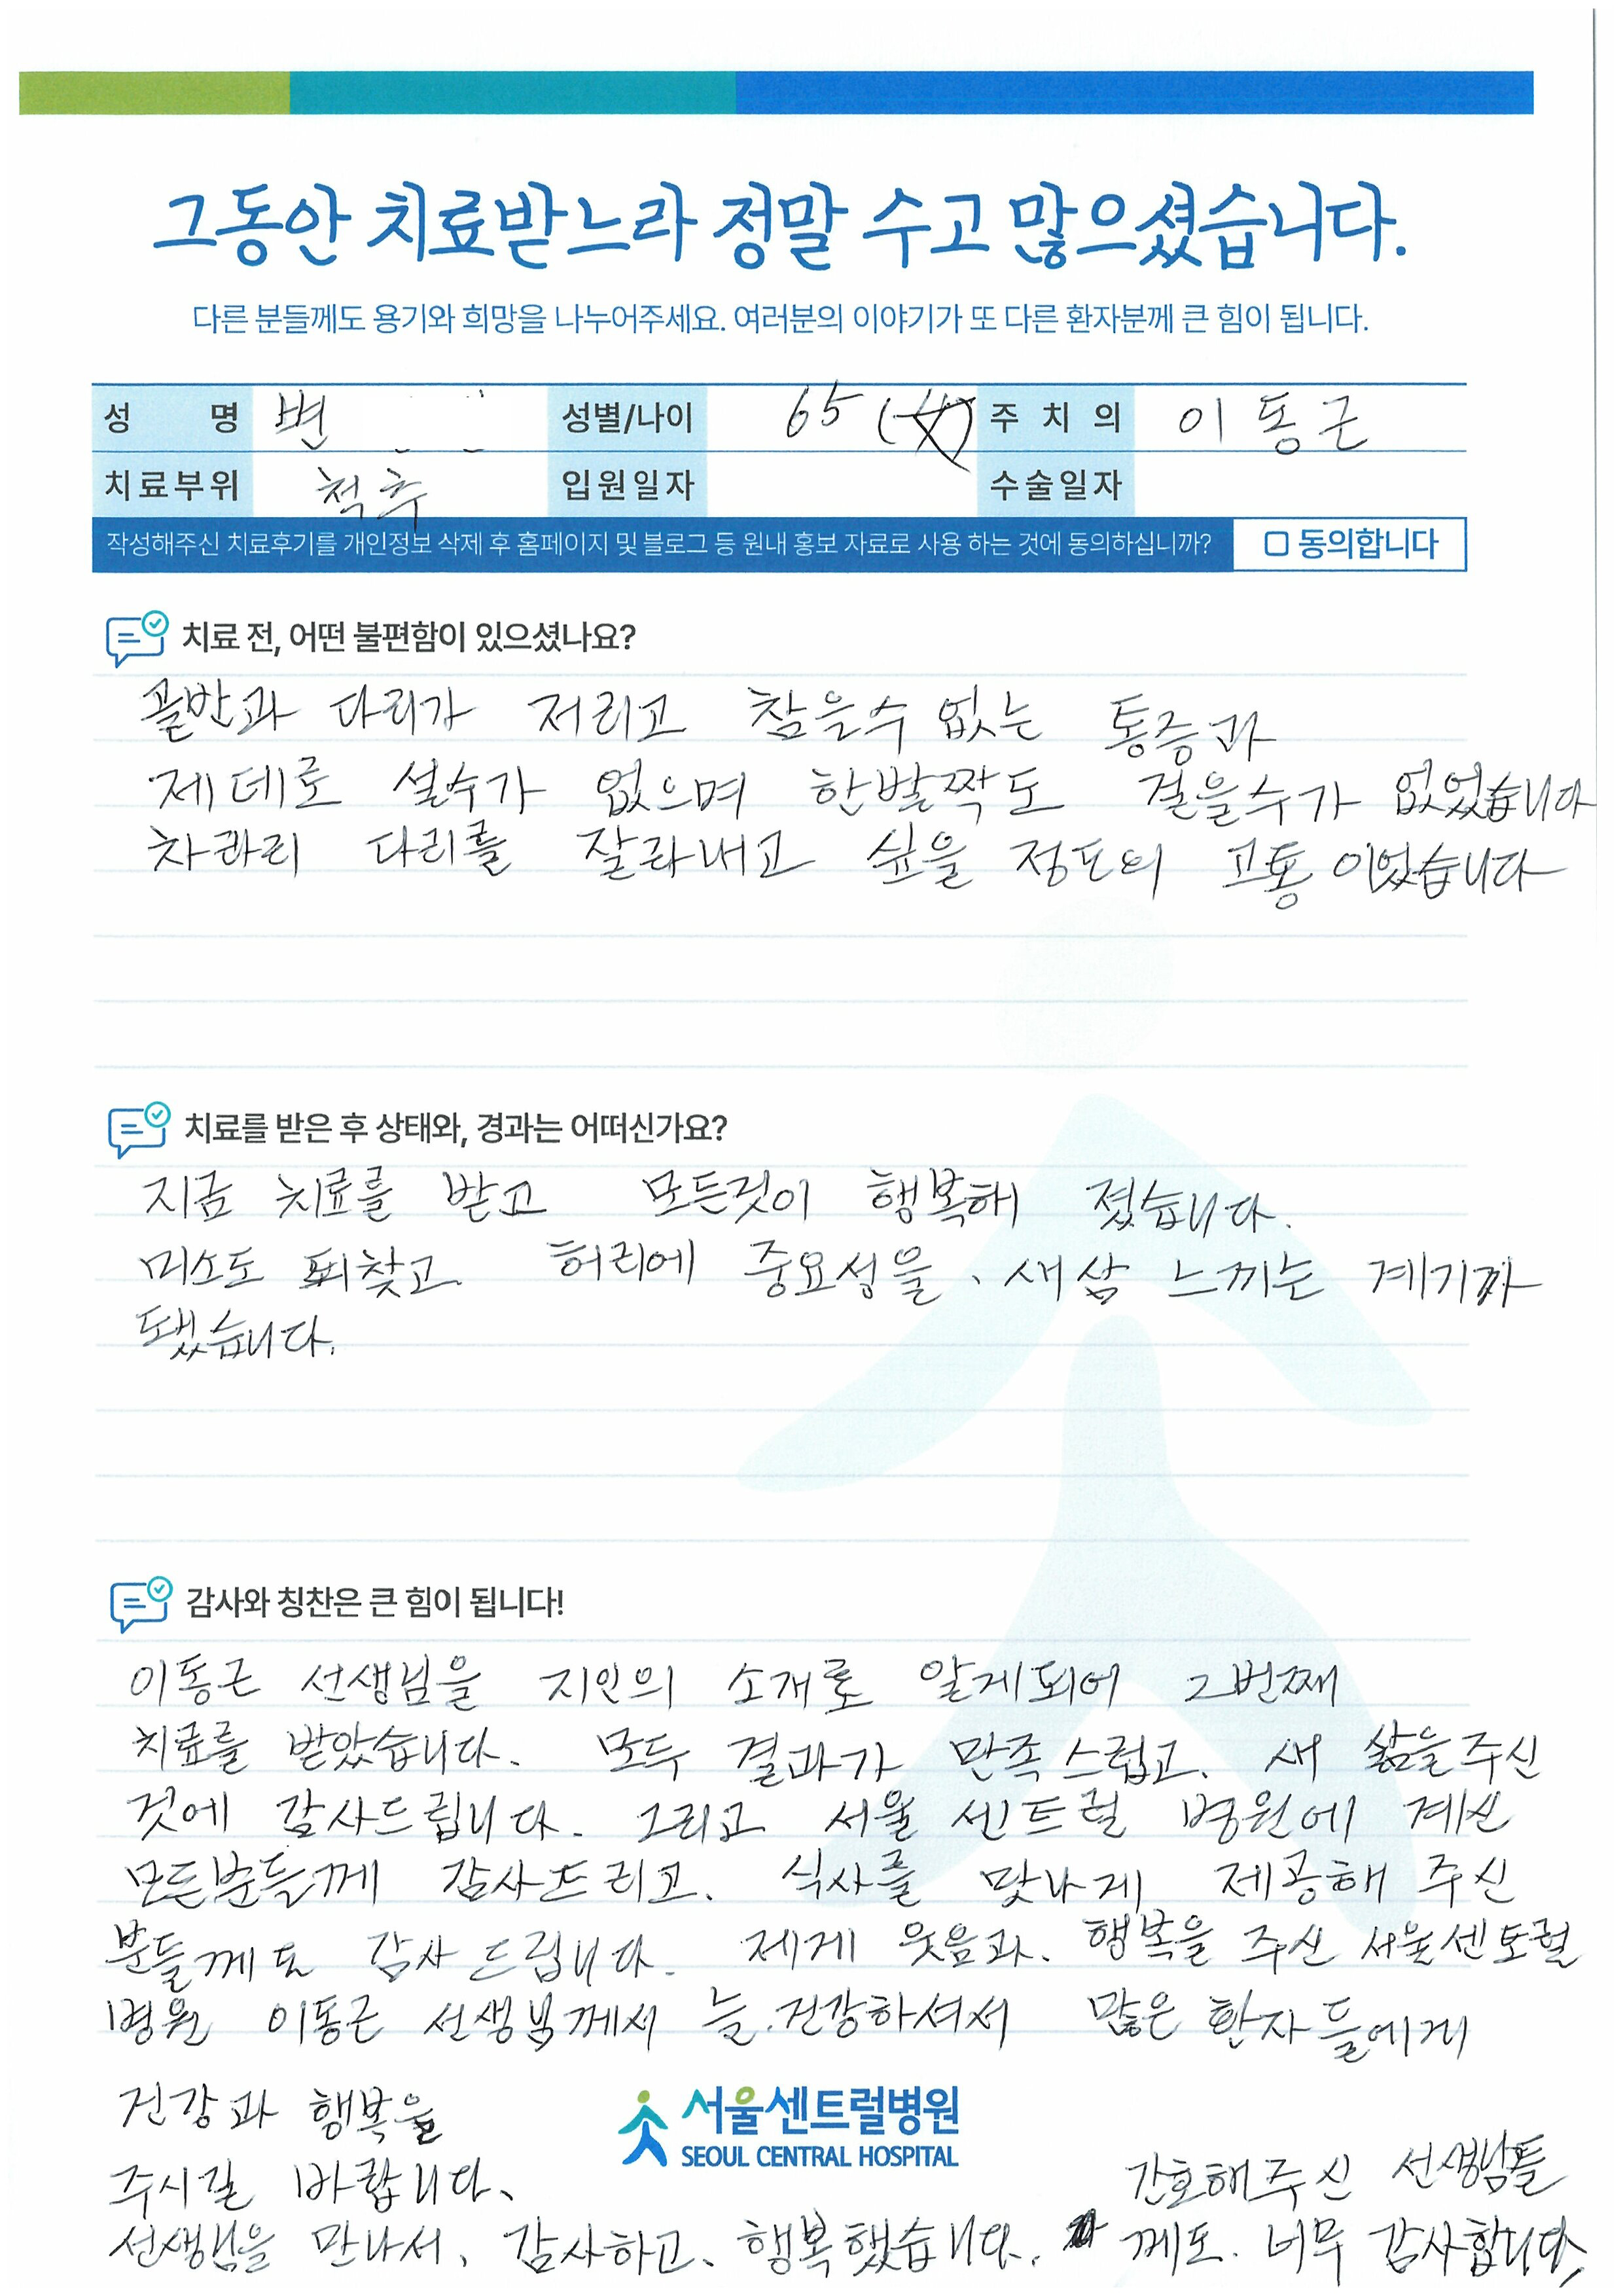 그동안 치료받느라 정말 수고 많으셨습니다.
다른 분들께도 용기와 희망을 나누어주세요. 여러분의 이야기가 또 다른 환자분께 큰 힘이 됩니다.
성 명 변 성별/나이 65 주치의 이동근
치료부위 척추 입원일자 수술일자
작성해주신 치료후기를 개인정보 삭제 후 홈페이지 및 블로그 등 원내 홍보 자료로 사용 하는 것에 동의하십니까? □ 동의합니다
치료 전, 어떤 불편함이 있으셨나요?
골반과 다리가 저리고 참을수 없는 통증과
제데로 설수가 없으며 한발짝도 걸을수가 없었습니다
차라리 다리를 잘라내고 싶을 정도의 고통 이었습니다
치료를 받은 후 상태와, 경과는 어떠신가요?
지금 치료를 받고 모든것이 행복해 졌습니다.
미소도 되찾고. 허리에 중요성을. 새삼 느끼는 계기가
됐습니다.
감사와 칭찬은 큰 힘이 됩니다!
이동근 선생님을 지인의 소개로 알게되어 2번째
치료를 받았습니다. 모두 결과가 만족스럽고. 새 삶을주신
것에 감사드립니다. 그리고 서울 센트럴 병원에 계신
모든분들께 감사드리고. 식사를 맛나게 제공해 주신
분들께도 감사 드립니다. 제게 웃음과. 행복을 주신 서울센트럴
병원 이동근 선생님께서 늘.건강하셔서 많은 환자들에게
건강과 행복을
주시길 바랍니다.
선생님을 만나서, 감사하고, 행복했습니다.
서울센트럴병원
SEOUL CENTRAL HOSPITAL
간호해주신 선생님들
께도. 너무 감사합니다,